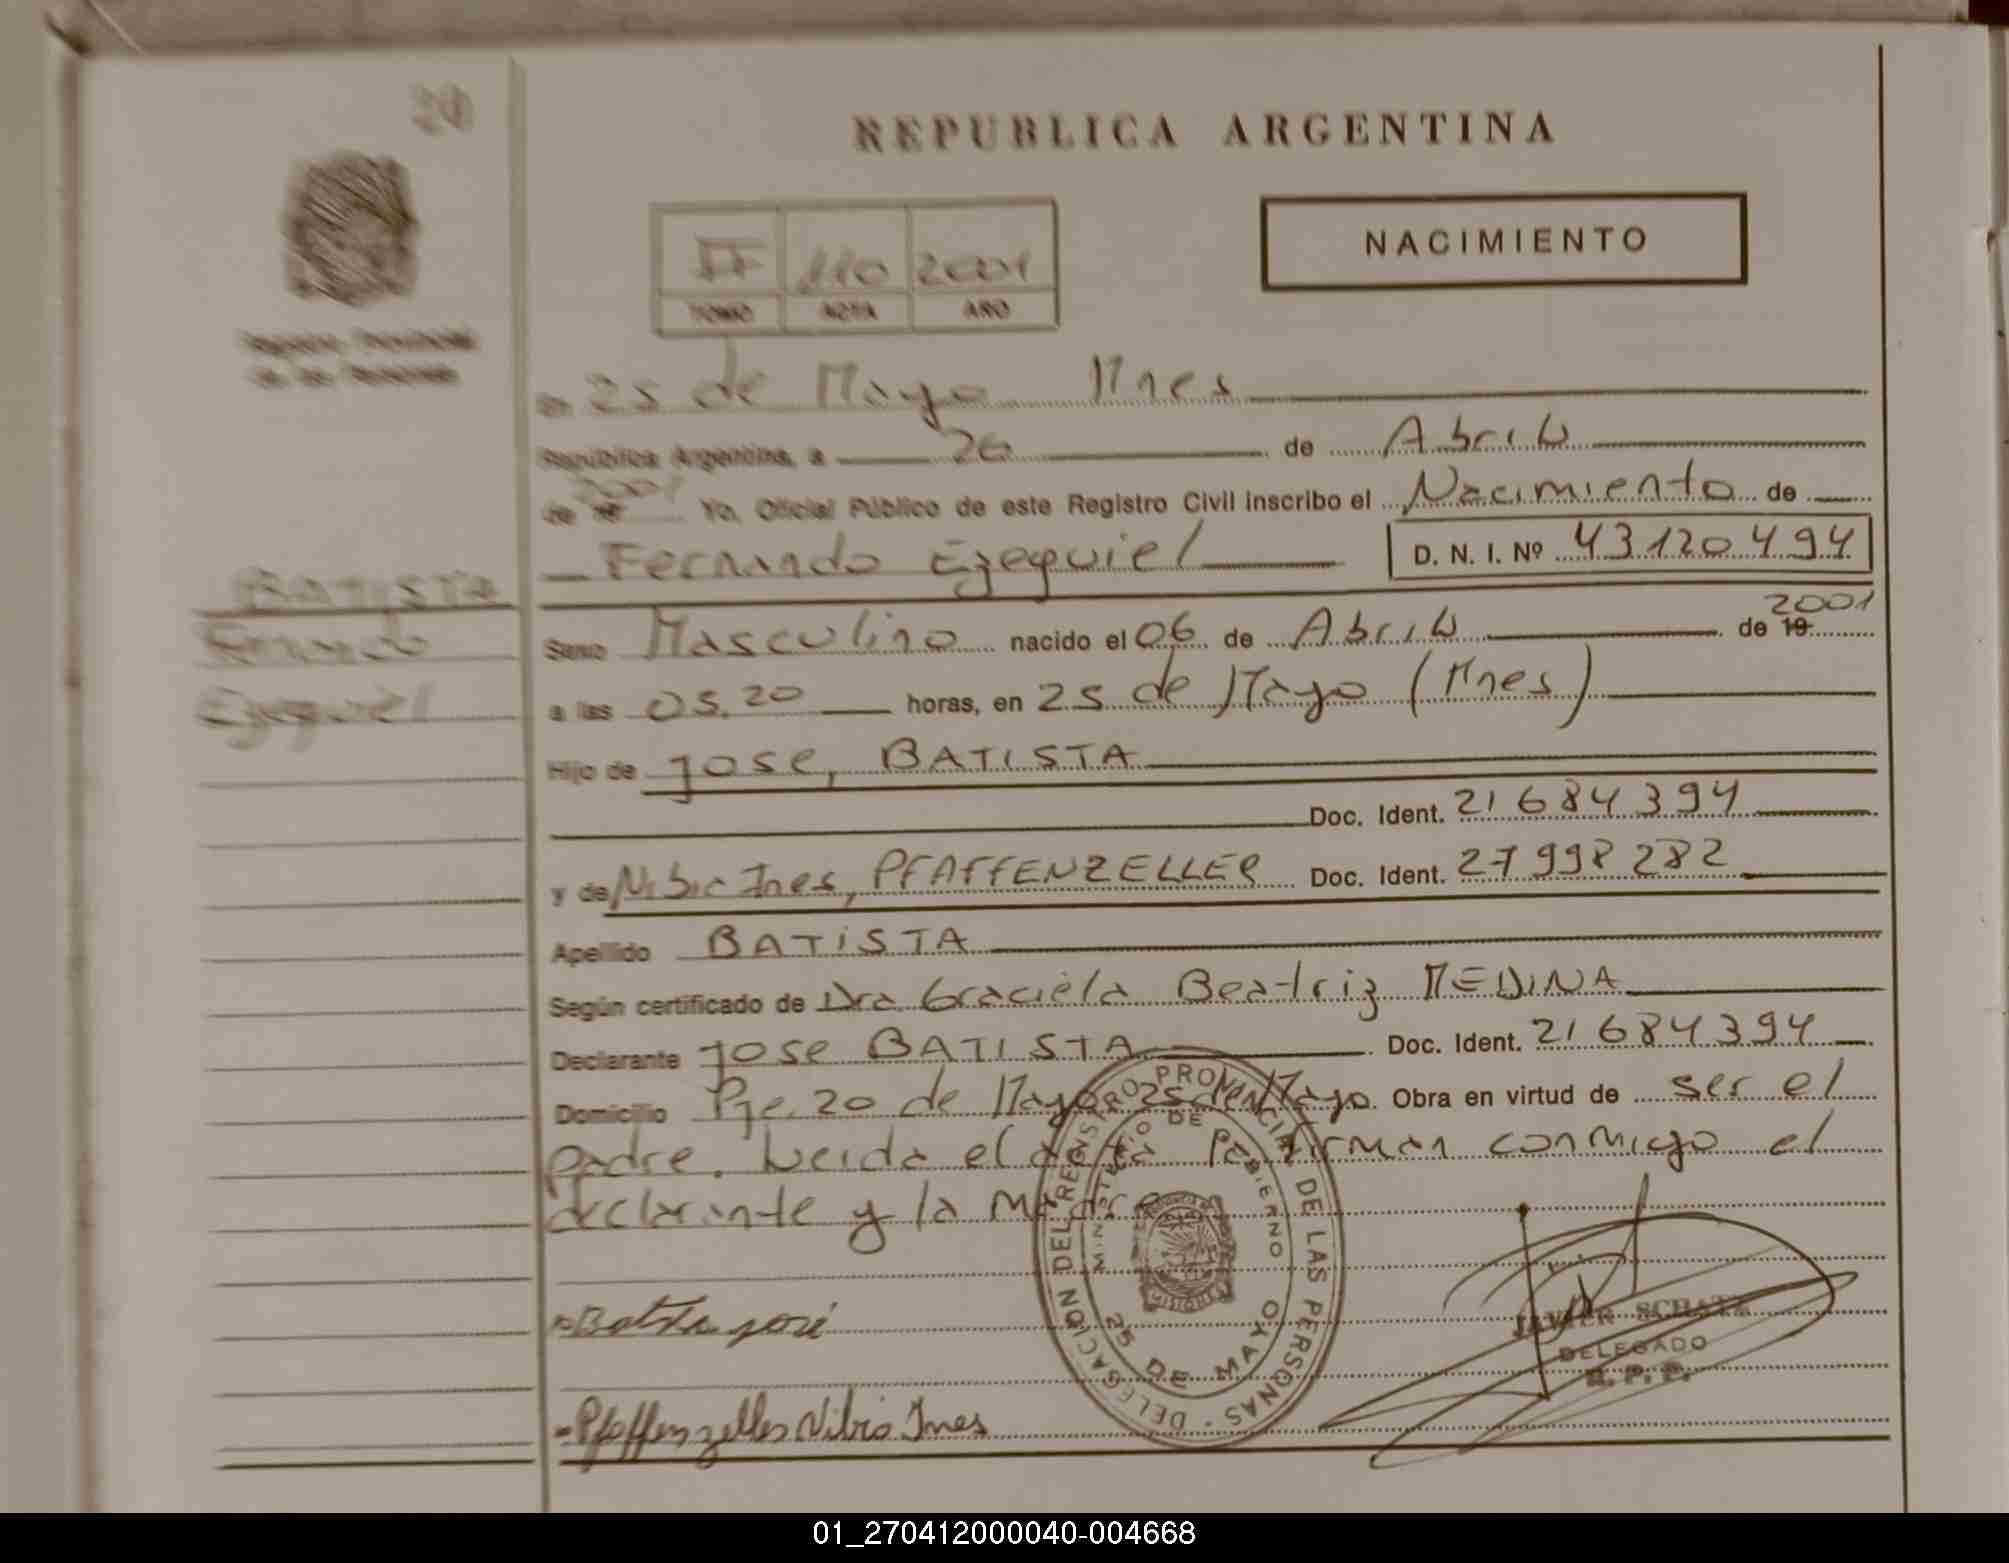 20
REPUBLICA ARGENTINA
NACIMIENTO
II 110 2001
TOMO ACTA AÑO
Registro Provincial
de las Personas
En 25 de Mayo Mnes
República Argentina, a 26 de Abril
de 19 2001 Yo, Oficial Público de este Registro Civil inscribo el Nacimiento de
Fernando Ezequiel D. N. I. Nº 43120494
BATISTA
Fernando
Ezequiel
Sexo Masculino nacido el 06 de Abril de 19 2001
a las 05.20 horas, en 25 de Mayo (Mnes)
Hijo de Jose, BATISTA
Doc. Ident. 21684394
y de Nibia Ines, PFAFFENZELLER Doc. Ident. 27998282
Apellido BATISTA
Según certificado de Dra Graciela Beatriz MEDINA
Declarante Jose BATISTA Doc. Ident. 21684394
Domicilio Pje. 20 de Mayo 25 de Mayo Obra en virtud de ser el
padre. Leida el acta la firman conmigo el
declarante y la Madre
DELEGACION DEL REGISTRO PROVINCIAL DE LAS PERSONAS - MINISTERIO DE GOBIERNO
MISIONES
25 DE MAYO
Batista José
JAVIER SCHATZ
DELEGADO
R. P. P.
Pfaffenzeller Nibia Ines
01_270412000040-004668